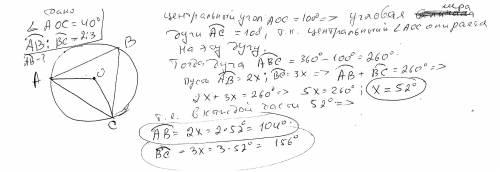 Дано
∠AOC=40°
AB: BC=2:3
AB-?
A
B
O
C
Центральный угол AOC=100° => угловая мера
дуги AC=100°, т.к. центральный ∠AOC опирается
на эту дугу.
Тогда дуга ABC=360°-100°=260°
Пусть AB=2x; BC=3x => AB+BC=260° =>
2x+3x=260° => 5x=260°; x=52°
т.е. в каждой части 52° =>
AB=2x=2·52°=104°
BC-3x=3·52°=156°